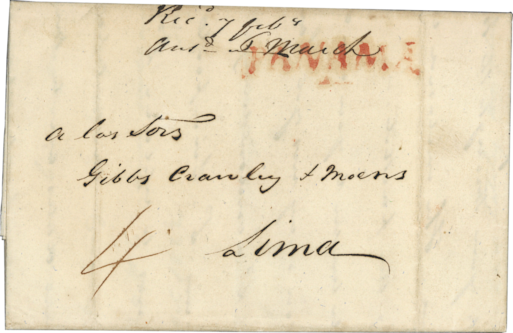 Recd. 7 Feby
Ansd. 5 March
PANAMA
a los Sors
Gibbs Crawley & Moens
4 Lima